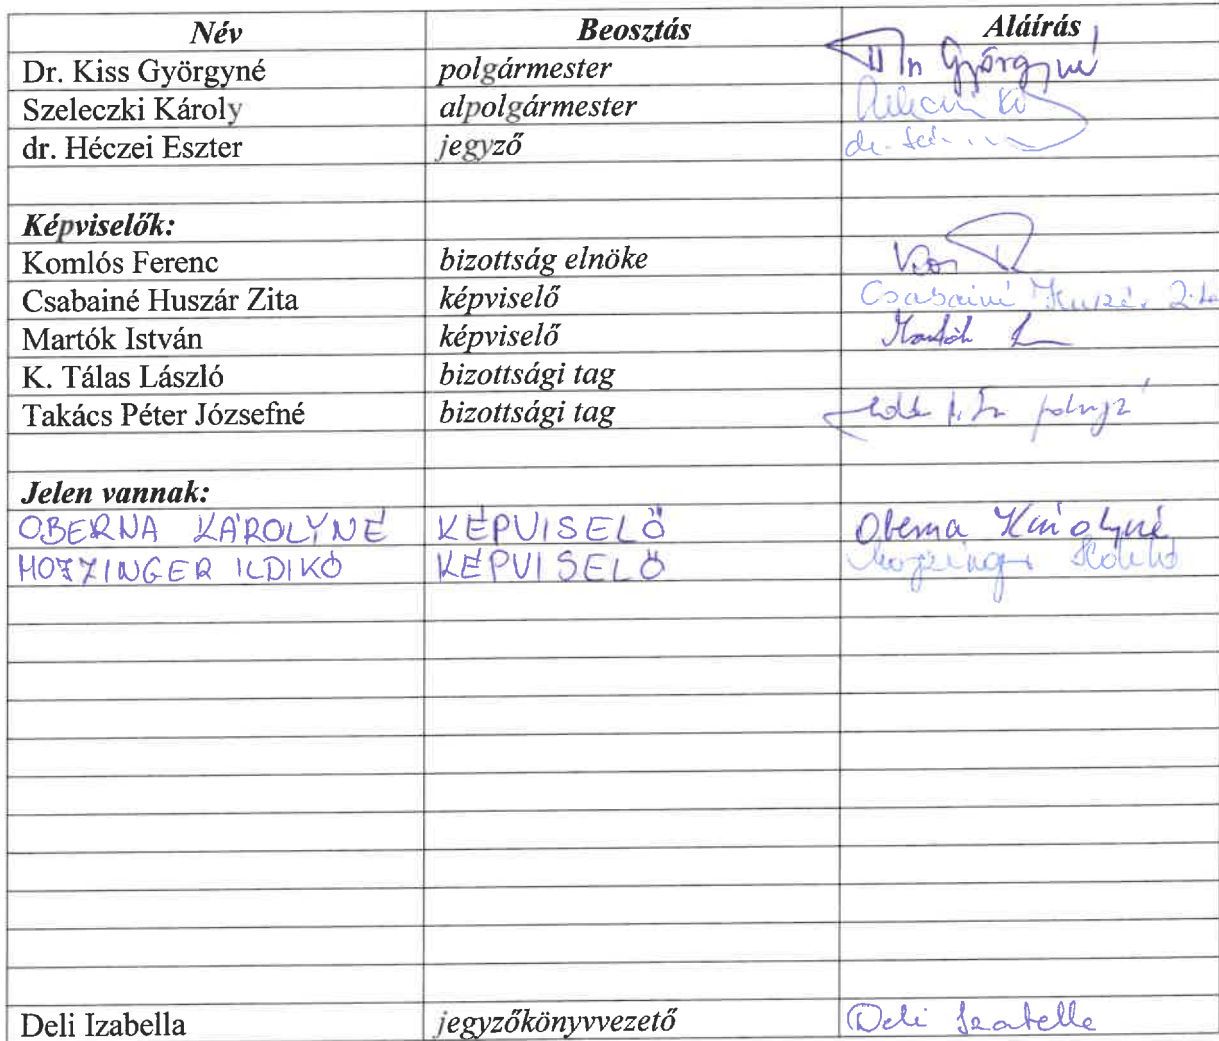 Név Beosztás Aláírás
Dr. Kiss Györgyné polgármester Györgyné
Szeleczki Károly alpolgármester
dr. Héczei Eszter jegyző dr.
Képviselők:
Komlós Ferenc bizottság elnöke
Csabainé Huszár Zita képviselő Csabainé Huszár Zita
Martók István képviselő Martók
K. Tálas László bizottsági tag
Takács Péter Józsefné bizottsági tag
Jelen vannak:
OBERNA KÁROLYNÉ KÉPVISELŐ Oberna Károlyné
MOTZINGER ILDIKÓ KÉPVISELŐ Ildikó
Deli Izabella jegyzőkönyvvezető Deli Izabella